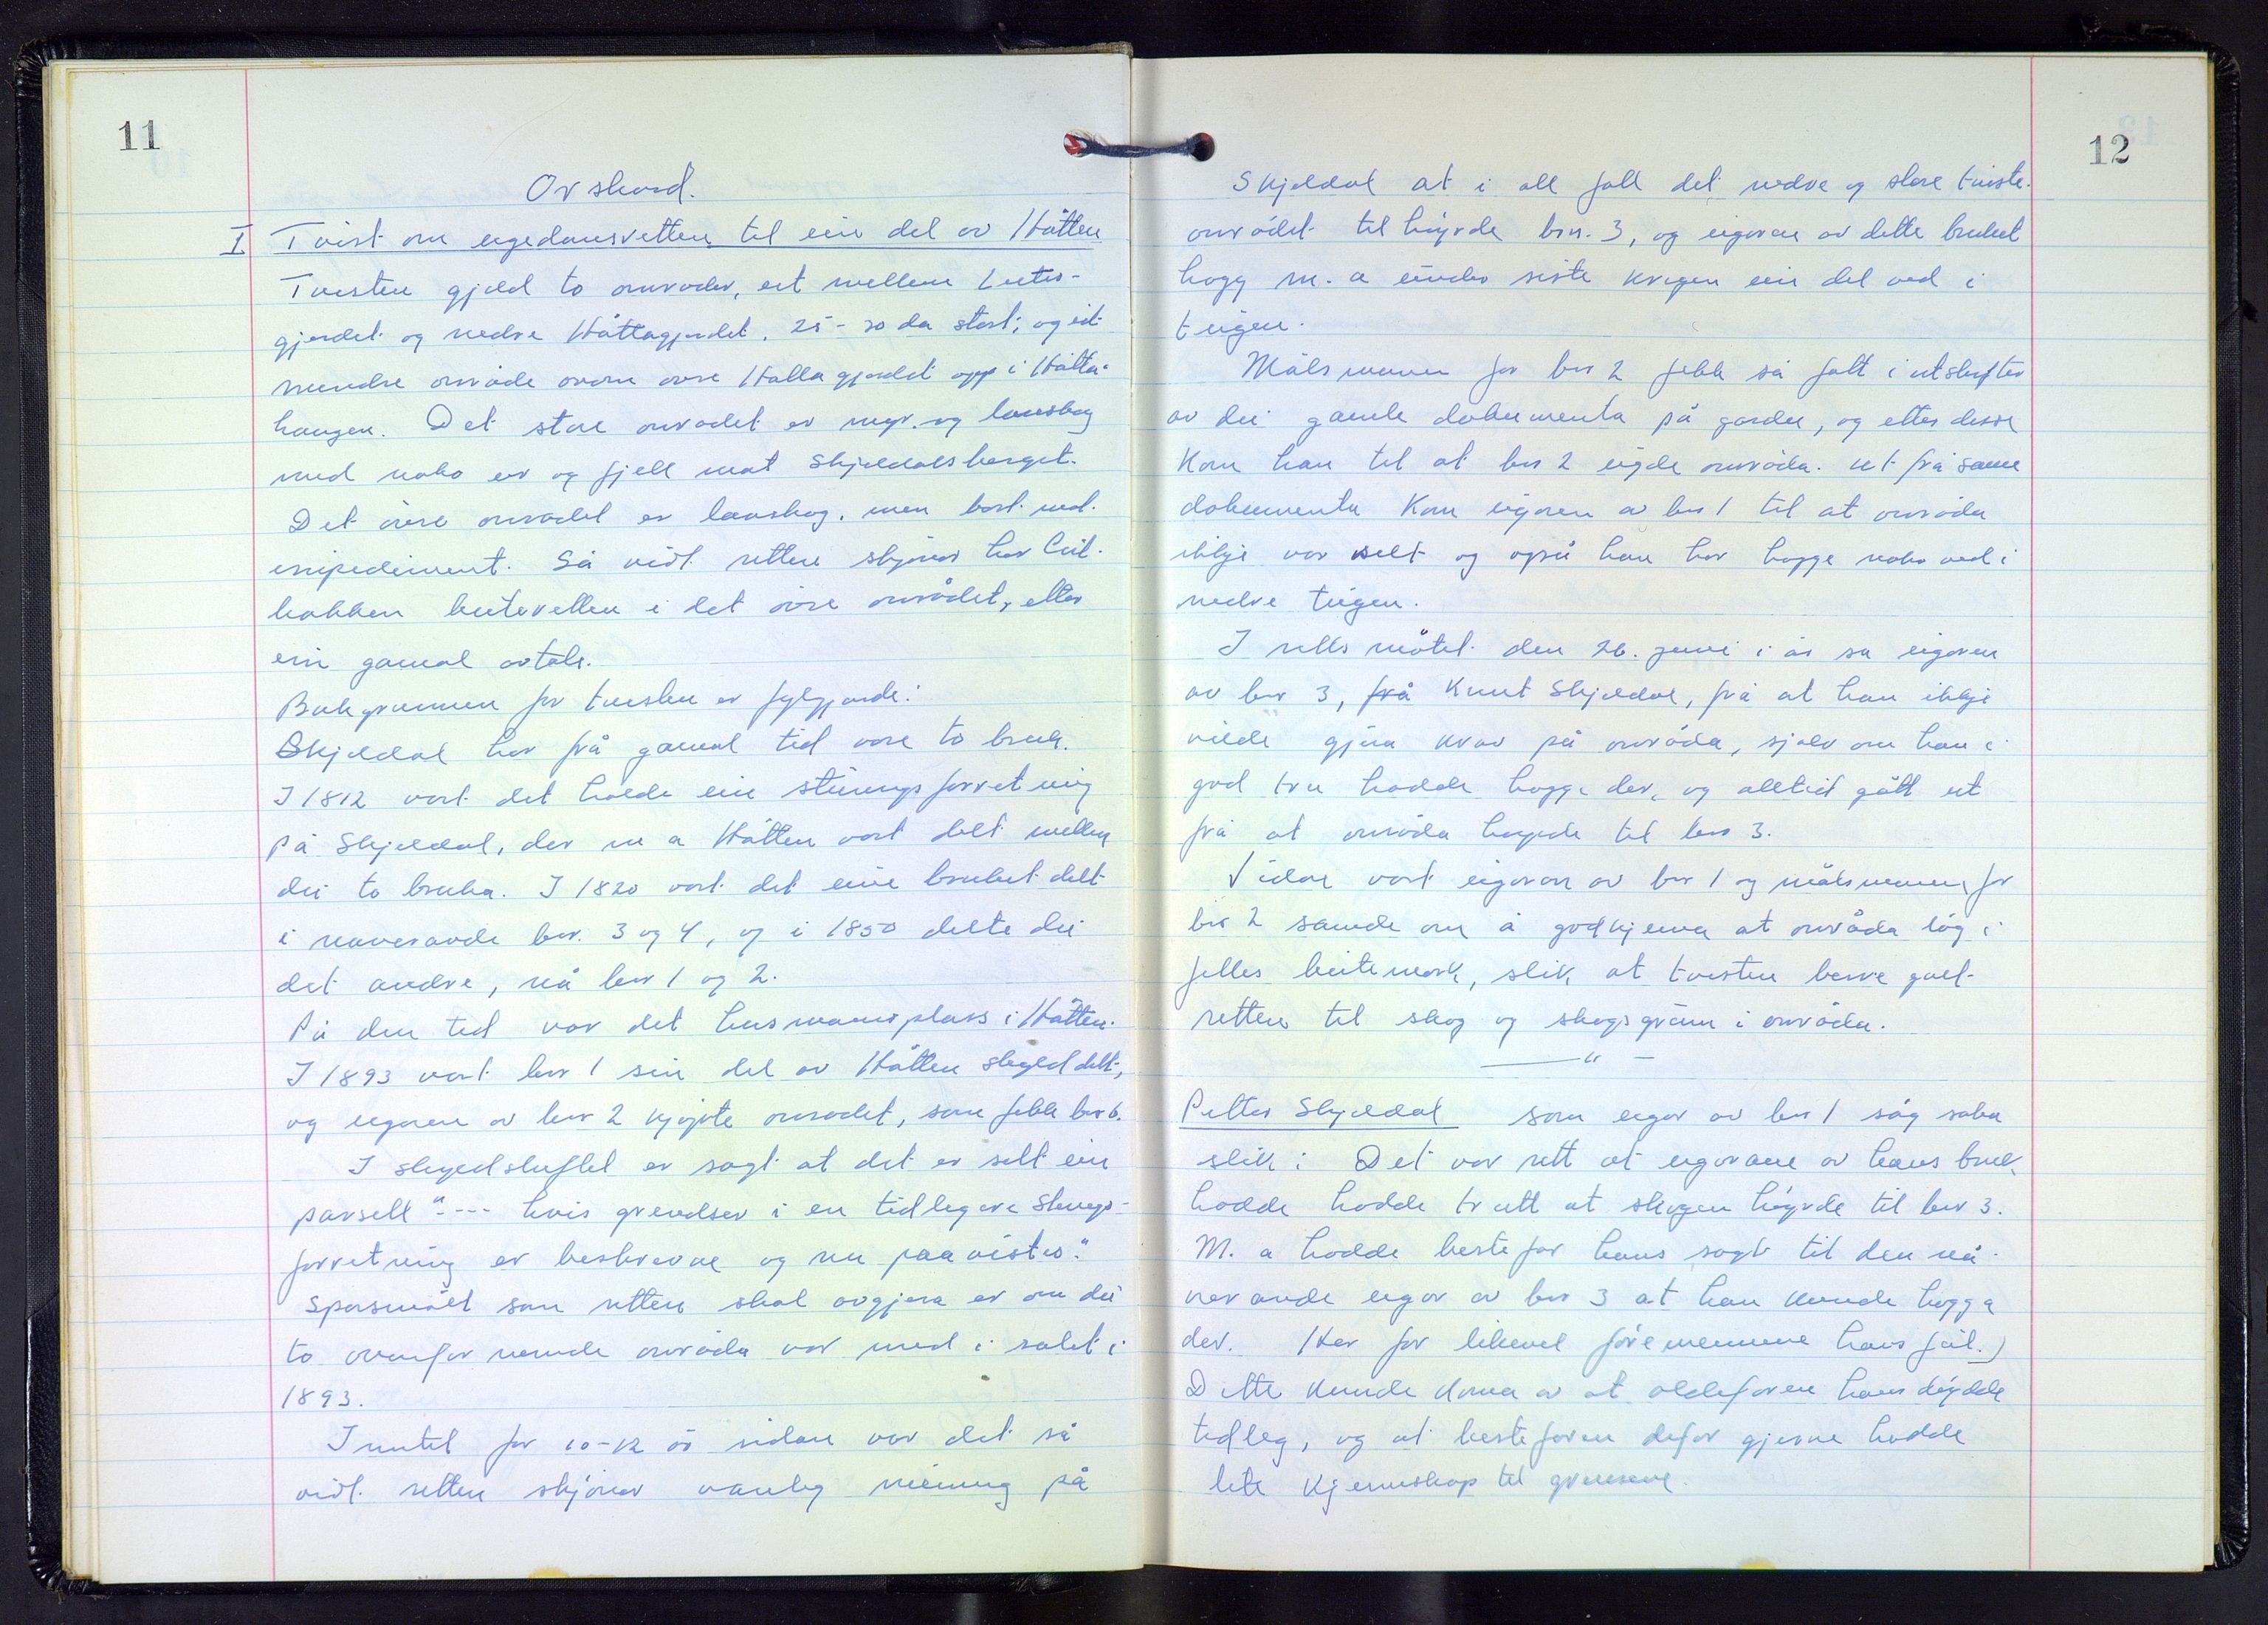 11
Orskurd.
I Tvist om eigedomsretten til ein del av Håtten
Tvisten gjeld to områder, eit mellom
gjerdet og nedre Håttagjerdet, 25-30 da stort, og eit
mindre område ovom øvre Håttagjerdet opp i Håtta-
haugen. Det store området er myr- og lauvskog
med noko ur og fjell mot Skjeldalsberget.
Det øvre området er lauvskog, men bort mot
impediment. Så vidt retten skjønar har Lid-
bakken beiteretten i det øvre området, etter
ein gamal avtale.
Bakgrunnen for tvisten er fylgjande:
Skjeldal har frå gamal tid vore to bruk.
I 1812 vart det halde ein skiningsforretning
på Skjeldal, der m a Håtten vart delt mellom
dei to bruka. I 1820 vart det eine bruket delt
i noverande bnr. 3 og 4, og i 1850 delte dei
det andre, nå bnr 1 og 2.
På den tid var det husmannsplass i Håtten.
I 1893 vart bnr 1 sin del av Håtten skylddelt,
og eigaren av bnr 2 kjøpte området, som fekk bnr 6.
I skyldskiftet er sagt at det er selt ein
parsell "---- hvis grendser i en tidlegere Skings-
forretning er beskrevne og nu paavistes."
Spørsmålet som retten skal avgjera er om dei
to ovanfor nemnde områda var med i salet i
1893.
Inntil for 10-12 år sidan var det så
vidt retten skjønar vanleg meining på
12
Skjeldal at i all fall det nedre og store tviste-
området til høyrde bnr. 3, og eigaren av dette bruket
hogg m. a under siste krigen ein del ved i
teigen.
Målsmannen for bnr 2 fekk så fatt i utskrifter
av dei gamle dokumenta på garden, og etter desse
kom han til at bnr 2 eigde områda. Ut frå same
dokumenta kom eigaren av bnr 1 til at områda
ikkje var selt og også han har hogge noko ved i
nedre teigen.
I rettsmøtet den 26. juni i år sa eigaren
av bnr 3, frå Knut Skjeldal, frå at han ikkje
vilde gjera krav på områda, sjølv om han i
god tru hadde hogge der, og alltid gått ut
frå at områda høyrde til bnr 3.
Vidare vart eigaren av bnr 1 og målsmannen for
bnr 2 samde om å godkjenna at områda låg i
felles beitemark, slik at tvisten berre galt
retten til skog og skogsgrunn i områda.
— " —
Petter Skjeldal som eigar av bnr 1 såg saka
slik: Det var rett at eigarane av hans bruk
hadde hadde trutt at skogen høyrde til bnr 3.
M. a hadde bestefar hans sagt til den nå-
verande eigar av bnr 3 at han kunde hogga
der. Her for likevel føremennene hans feil.)
Dette kunde koma av at oldefaren hans døydde
tidleg, og at bestefaren difor gjerne hadde
lite kjennskap til grensene.